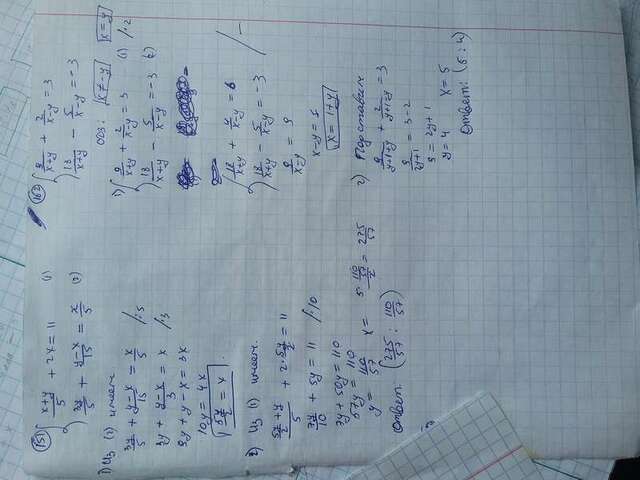 151
x+y/5 + 2x = 11 (1)
3y/5 + y-x/15 = x/5 (2)
1) Из (2) имеем
3y/5 + y-x/15 = x/5 /·5
3y + y-x/3 = x /·3
9y + y - x = 3x
10y = 4x
5y/2 = x
2) Из (1) имеем.
5y/2 + y/5 + 2·5y/2 = 11
7y/10 + 5y = 11 /·10
7y + 50y = 110
57y = 110
y = 110/57 x = 5·110/57/2 = 275/57
Ответ: (275/57 ; 110/57)
162
9/x+y + 2/x-y = 3
18/x+y - 5/x-y = -3
ОДЗ: x ≠ -y x = y
1) 9/x+y + 2/x-y = 3 (1) /·2
18/x+y - 5/x-y = -3 (2)
18/x+y + 4/x-y = 6
18/x+y - 5/x-y = -3 / -
9/x-y = 9
x-y = 1
x = 1+y
2) Подставим
9/y+1+y + 2/y+1-y = 3
9/2y+1 = 3-2
9 = 2y+1
y = 4 x = 5
Ответ: (5 ; 4)